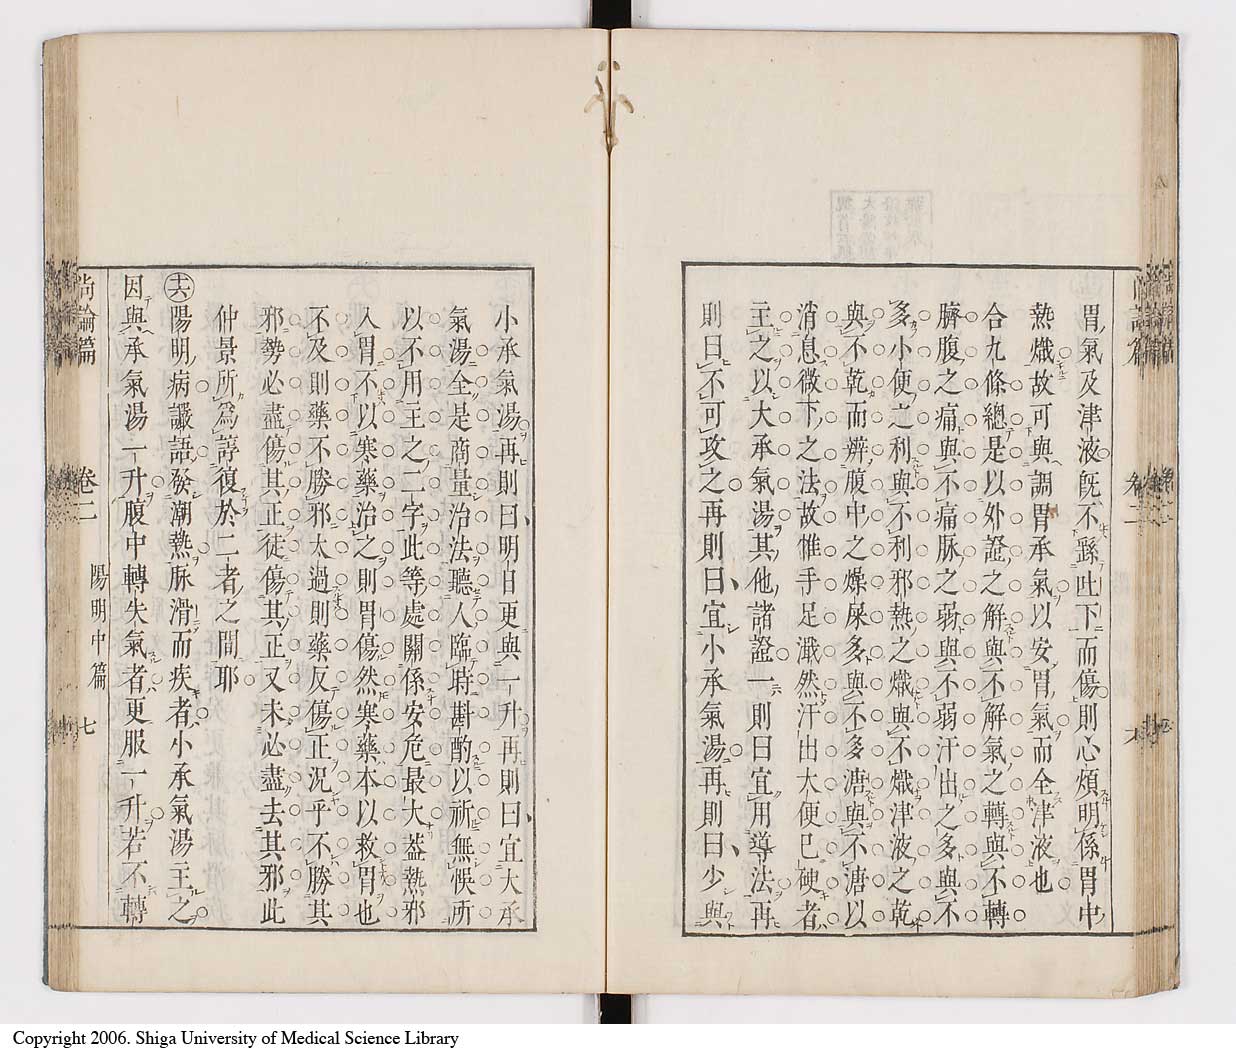 胃氣及津液既不繇吐下而傷則心煩明係胃中
熱熾故可與調胃承氣以安胃氣而全津液也
合九條總是以外證之解與不解氣之轉與不轉
臍腹之痛與不痛脉之弱與不弱汗出之多與不
多小便之利與不利邪熱之熾與不熾津液之乾
與不乾而辨腹中之燥屎多與不多溏與不溏以
消息微下之法故惟手足濈然汗出大便已硬者
主之以大承氣湯其他諸證一則曰宜用導法再
則曰不可攻之再則曰宜小承氣湯再則曰少與
小承氣湯再則曰明日更與一升再則曰宜大承
氣湯全是商量治法聽人臨時斟酌以祈無悞所
以不用主之二字此等處關係安危最大葢熱邪
入胃不以寒藥治之則胃傷然寒藥本以救胃也
不及則藥不勝邪太過則藥反傷正況乎不勝其
邪勢必盡傷其正徒傷其正又未必盡去其邪此
仲景所爲諄復於二者之間耶
十六陽明病讝語發潮熱脉滑而疾者小承氣湯主之
因與承氣湯一升腹中轉失氣者更服一升若不轉
尚論篇 卷二 陽明中篇 七
Copyright 2006. Shiga University of Medical Science Library